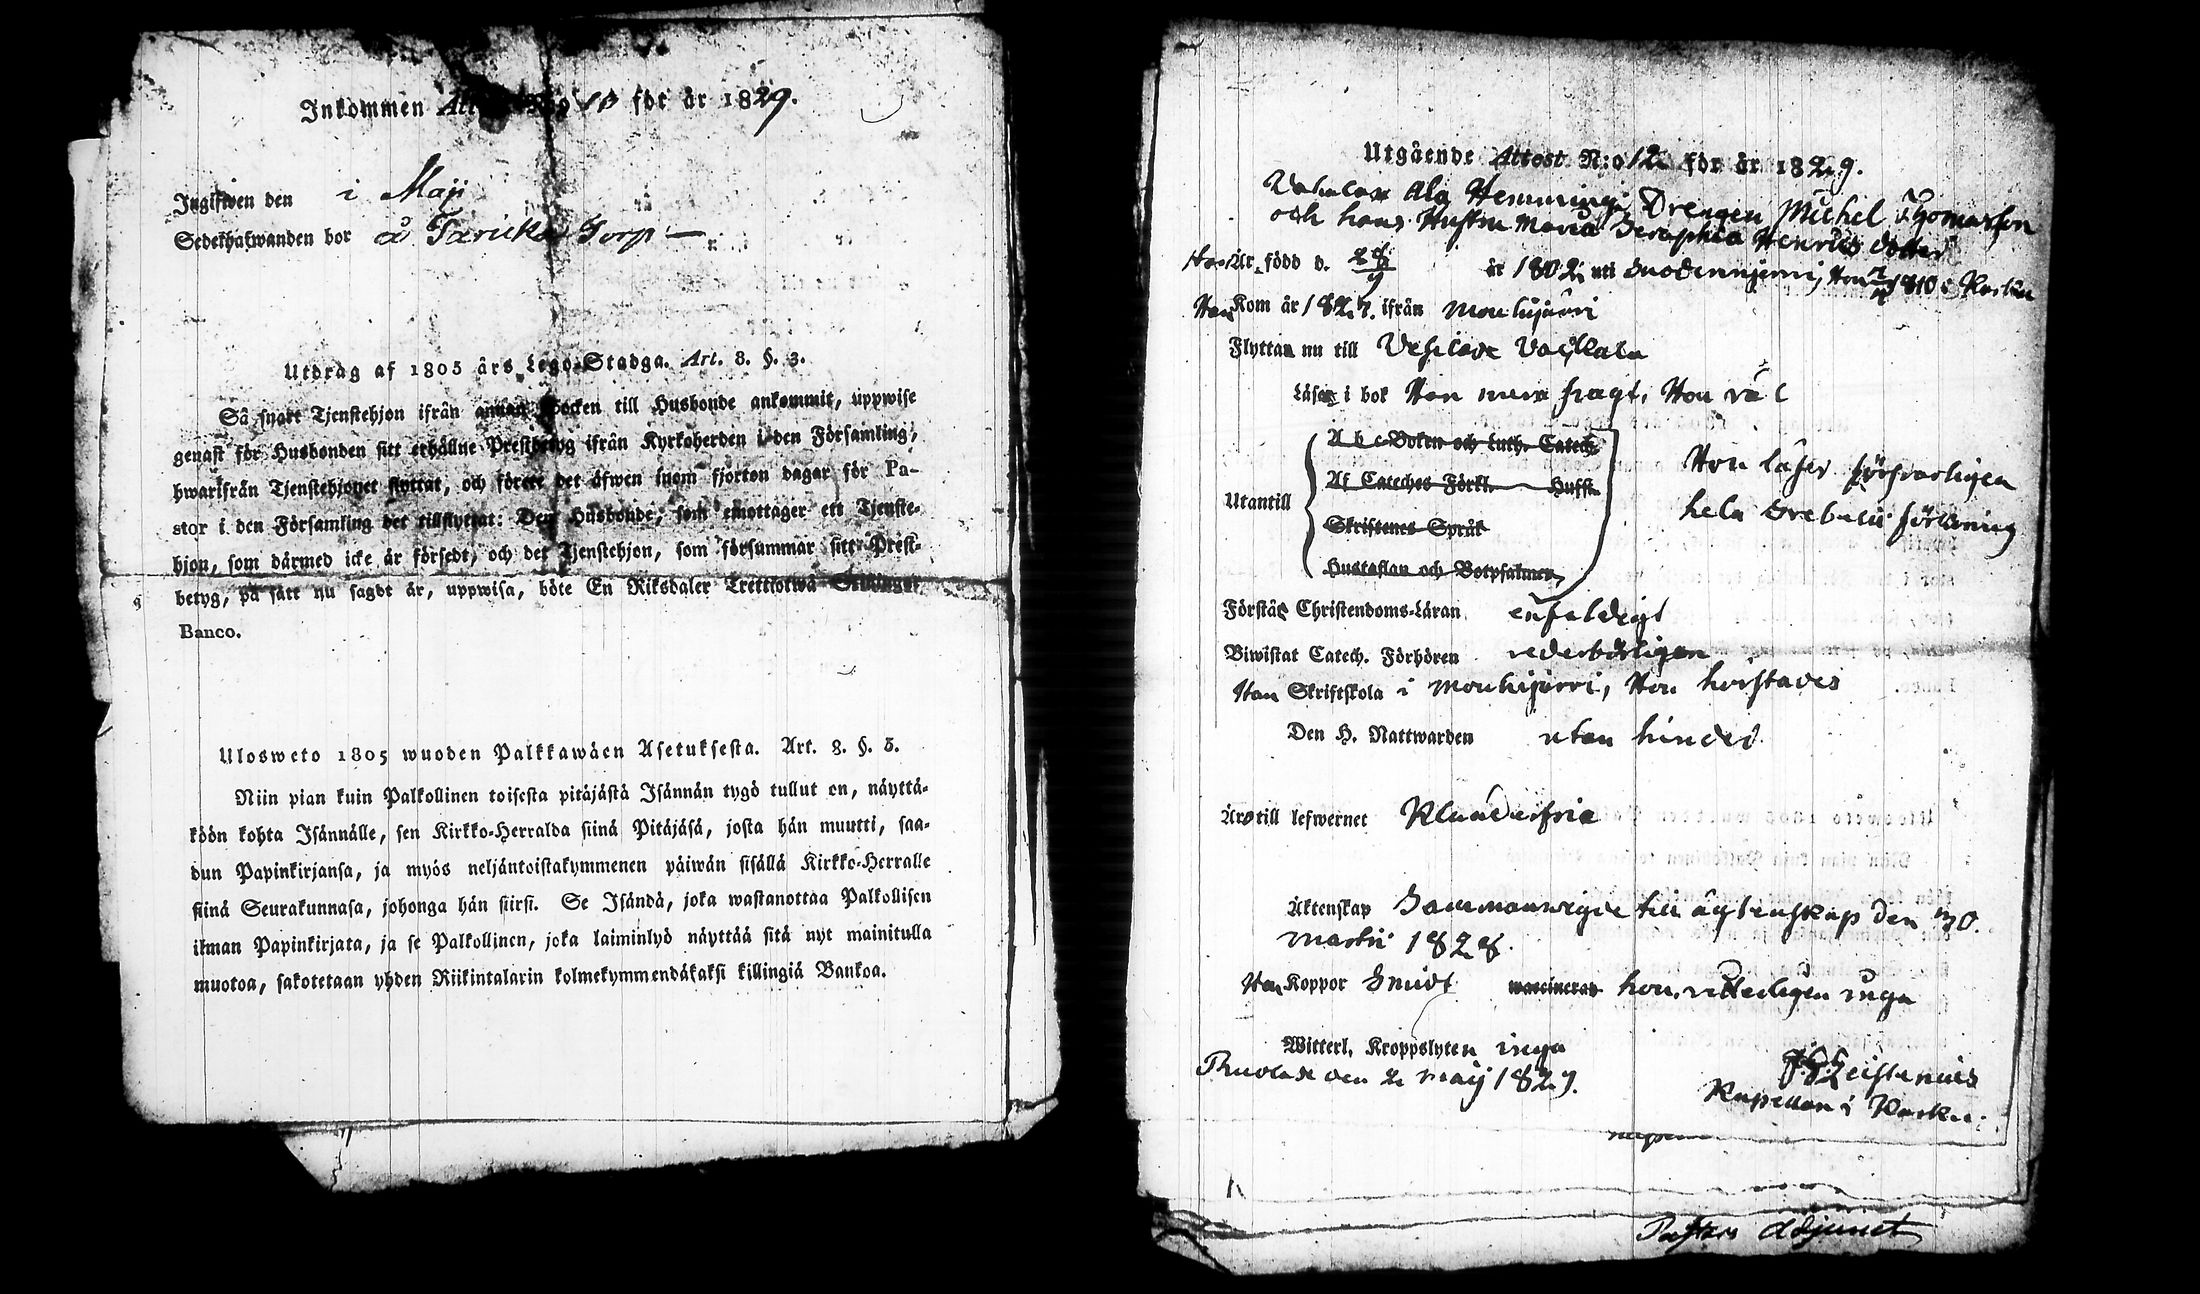 Inkommen Att N:o 18 för år 1829.
Ingifwen den i Maji
Sedelhafwanden bor å Torp
Utdrag af 1805 års Lego-Stadga. Art. 8. §. 3.
Så snart Tjenstehjon ifrån annan Socken till Husbonde ankommit, uppwise
genast för Husbonden sitt erhållne Prestbetyg ifrån Kyrkoherden i den Församling,
hwarifrån Tjenstehjonet flyttat, och förete det äfwen inom fjorton dagar för Pa-
stor i den Församling det tillflyttat: Den Husbonde, som emottager ett Tjenste-
hjon, som därmed icke är försedt, och det Tjenstehjon, som försummar sitt Prest-
betyg, på sätt nu sagdt är, uppwisa, böte En Riksdaler Trettiotwå Skillingar
Banco.
Ulosweto 1805 wuoden Palkkawäen Asetuksesta. Art. 8. §. 3.
Niin pian kuin Palkollinen toisesta pitäjästä Isännän tygö tullut on, näyttä-
köön kohta Isännälle, sen Kirkko-Herralda siinä Pitäjäsä, josta hän muutti, saa-
dun Papinkirjansa, ja myös neljäntoistakymmenen päiwän sisällä Kirkko-Herralle
siinä Seurakunnasa, johonga hän siirsi. Se Isändä, joka wastanottaa Palkollisen
ilman Papinkirjata, ja se Palkollinen, joka laiminlyö näyttää sitä nyt mainitulla
muotoa, sakotetaan yhden Riikintalarin kolmekymmendäkaksi killingiä Bankoa.
Utgående Attest N:o 12 för år 1829.
Ala Hemmings Drengen Michel Thomasson
och hans Hustru Maria Seraphia Henriks dotter
Han Är född d. 28/9 år 1802 uti Suodenniemi, Hon 1810 i Karku
Han Kom år 1827. ifrån Mouhijärvi
Flytta nu till Vesilax
Läser i bok Han men svagt, Hon väl
A b c-Boken och Luth. Catech.
Af Cateches Förkl. Husst.
Utantill
Skriftenes Språk
Hustaflan och Botpsalmen
Hon läser försvarligen
hela Svebelii förklaring
Förstår Christendoms-Läran enfaldigt
Biwistat Catech. Förhören vederbörligen
Han Skriftskola i Mouhijärvi, Hon härstädes
Den H. Nattwarden utan hinder
Är till lefwernet Klanderfria
Äktenskap Sammanvigde till ägtenskap den 30.
Martii 1828.
Han Koppor Smidt waccinerad hon, vitterligen inga
Witterl. Kroppslyten inga
den 2 Maij 1829.
Kapellan i Karku.
Pastors Adjunct